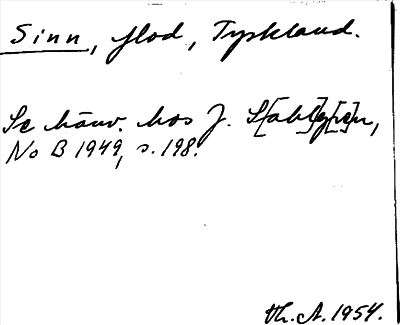 Sinn, flod, Tyskland.
Se hänv. hos J. S[ahl]g[re]n,
No B 1949, s. 198.
th. A. 1954.